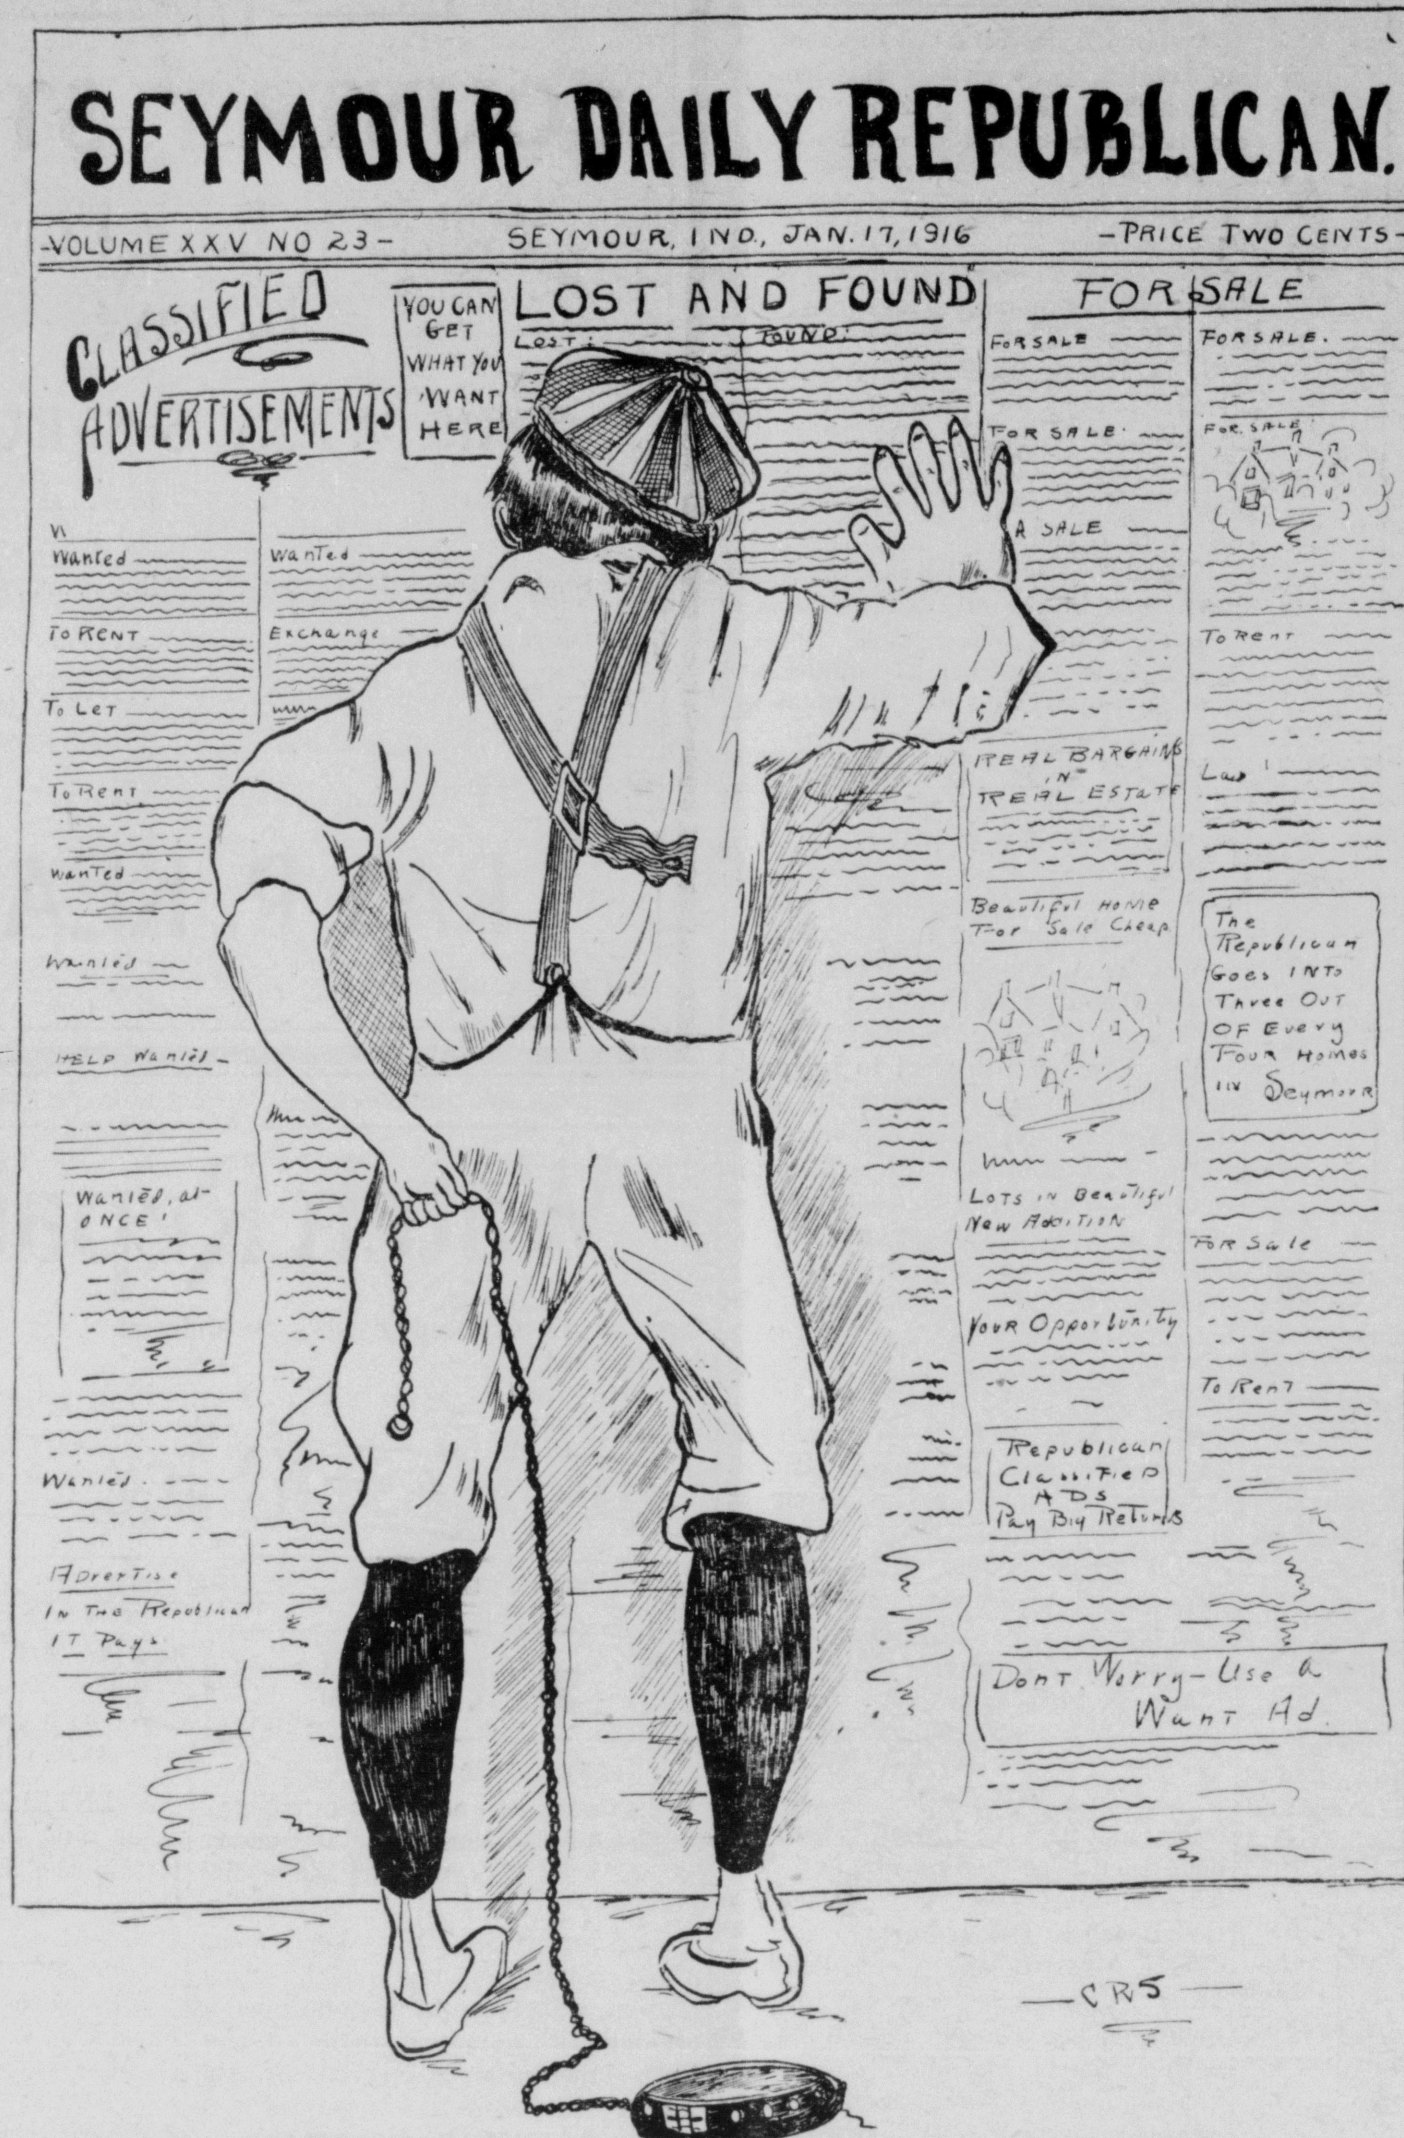 SEYMOUR DAILY REPUBLICAN.
-VOLUME XXV NO 23-
SEYMOUR, IND., JAN. 17, 1916
-PRICE TWO CENTS-
CLASSIFIED
ADVERTISEMENTS
YOU CAN
GET
WHAT YOU
WANT
HERE
Wanted
To RENT
To LET
To Rent
Wanted
Wanted
HELP Wanted
Wanted, at
ONCE!
Wanted.
Advertise
IN THE Republican
IT Pays
Wanted
Exchange
LOST AND FOUND
LOST:
FOUND:
FOR SALE
FOR SALE
FOR SALE.
A SALE
REAL BARGAINS
IN
REAL ESTATE
Beautiful HOME
For Sale Cheap
LOTS IN Beautiful
New Addition
YOUR Opportunity
Republican
Classified
ADS
Pay Big Returns
FOR SALE.
FOR. SALE
To Rent
The
Republican
Goes INTO
Three OUT
OF Every
FOUR Homes
IN Seymour
FOR Sale
To Rent
DONT Worry-Use a
Want Ad.
-CRS-